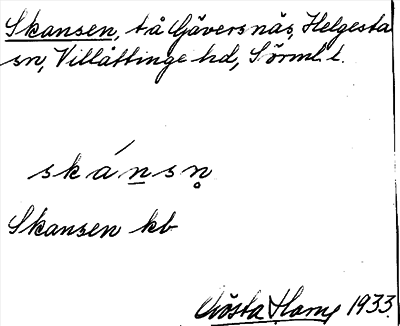 Skansen, t å Gäversnäs, Helgesta
sn, Villåttinge hd, Sörml. l.
skánsn̥
Skansen kb
Gösta Harne 1933.